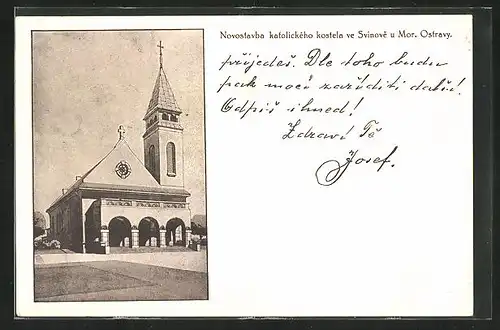 Novostavba katolického kostela ve Svinově u Mor. Ostravy.
přijedeš. Dle toho budu
pak moci zaříditi další.
Odpiš ihned!
Zdraví Tě
Josef.